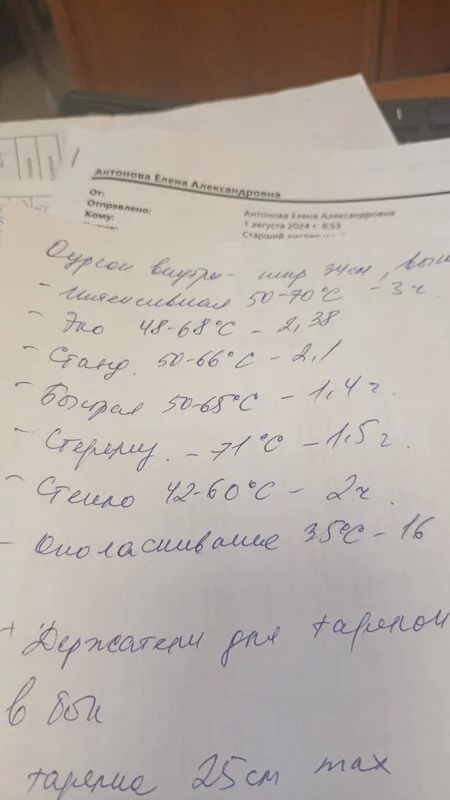 Антонова Елена Александровна
От:
Отправлено:
Кому:
Антонова Елена Александровна
1 августа 2024 г. 8:53
Старший
внутри - шир 34см, выс
- Интенсивная 50-70°C - 3 ч.
- Эко 48-68°C - 2,38
- Станд. 50-66°C - 2,1
- Быстрая 50-65°C - 1,4 ч.
- Стерилиз. - 71°C - 1,5 ч.
- Стекло 42-60°C - 2 ч.
- Ополаскивание 35°C - 16
+ Держатели для тарелок
в бок
тарелка 25 см max